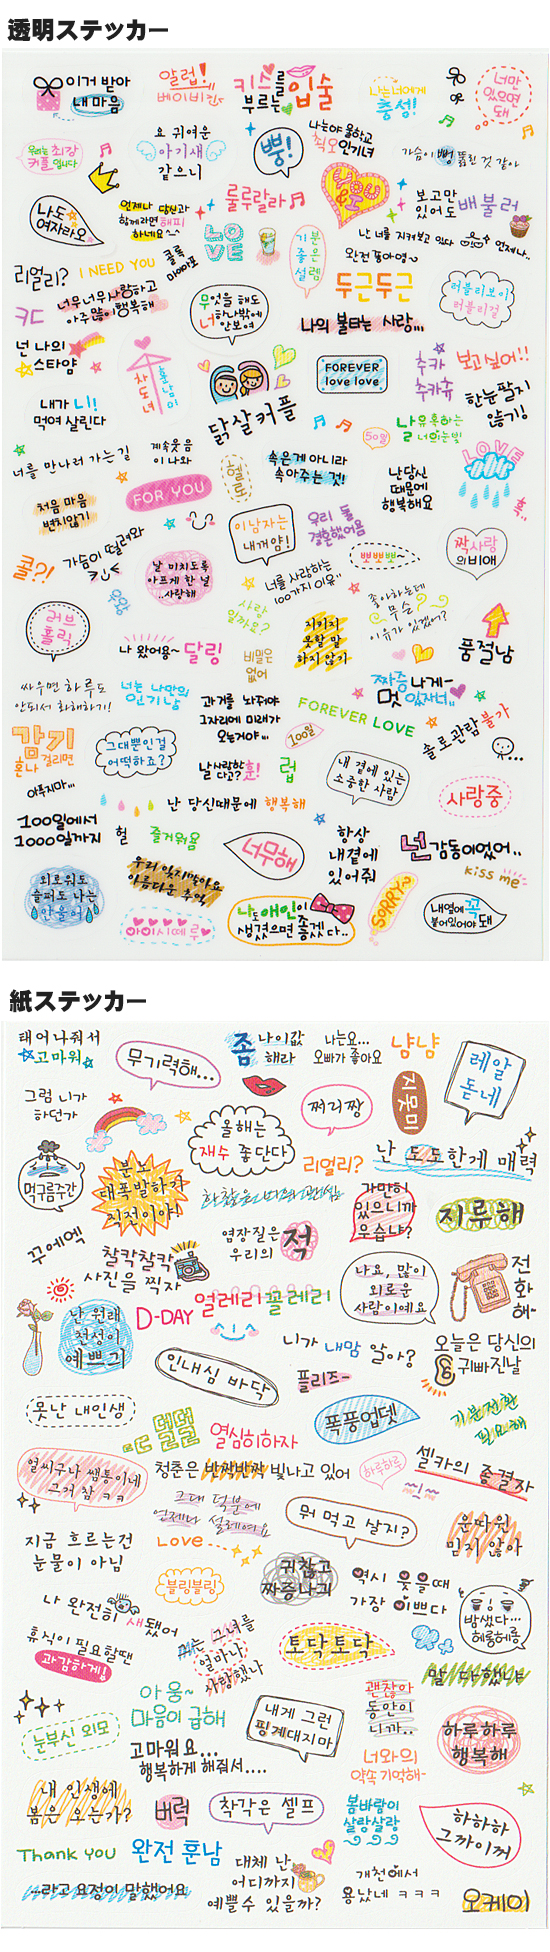 透明ステッカー
이거 받아
내 마음
알럽!
베이비걸
키스를
부르는 입술
나는 너에게
충성!
너만
있으면
돼
우리는 최강
커플입니다
요 귀여운
아기새
같으니
뿡!
나는야 울학교
최고 인기녀
가슴이 뻥 뚫린 것 같아
나도
여자라오
언제나 당신과
함께라면 해피
하네요~
룰루랄라
YOU & I
보고만
있어도 배불러
LOVE
기분
좋은
설렘
난 너를 지켜보고 있다
언제나..
완전 좋아염~
리얼리?
I NEED YOU
너무너무 사랑하고
아주 많이 행복해
무엇을 해도
너 하나밖에
안보여
두근두근
러블리보이
러블리걸
나의 불타는 사랑...
넌 나의
스타얌
차도녀
훈남이
FOREVER
love love
추카
추카츄
보고싶어!!
한눈팔지
않기!
내가 니!
먹여 살린다
닭살커플
나 유혹하는
너의 눈빛
50일
LOVE
너를 만나러 가는 길
계속 웃음
이 나와
속은게 아니라
속아주는 것!
난 당신
때문에
행복해요
처음 마음
변치않기
FOR YOU
이남자는
내꺼얌!
우리 둘
결혼했어욤
뽀뽀뽀
짝사랑
의 비애
쿨?!
가슴이 떨려와
날 미치도록
아프게 한 널
..사랑해
너를 사랑하는
100가지 이유
좋아하는데
무슨
이유가 있겠어?
러브
홀릭
사랑
일까요?
지키지
못할 말
하지 않기
품절남
나 왔어용~ 달링
비밀은
없어
짜증나게~
멋있자너..
싸우면 하루도
안되서 화해하기!
너는 나만의
인기남
과거를 놔줘야
그자리에 미래가
오는거야...
FOREVER LOVE
솔로관람불가
감기
걸리면
혼나
그대뿐인걸
어떡하죠?
날 사랑한
다고? 훈!
럽
100일
내 곁에 있는
소중한 사람
사랑중
아푸지마...
난 당신때문에 행복해
100일에서
1000일까지
헐
즐거워욤
너무해
항상
내곁에
있어줘
넌 감동이었어..
kiss me
외로워도
슬퍼도 나는
안울어
우리 잊지말아요
아름다운 추억
아이시떼루
나도 애인이
생겼으면 좋겠다..
SORRY?
내옆에 꼭
붙어있어야 돼
紙ステッカー
태어나줘서
고마워
무기력해...
좀 나이값
해라
나는요...
오빠가 좋아요
냠냠
레알
돋네
그럼 니가
하던가
쩌리짱
지못미
올해는
재수 좋단다
리얼리?
난 도도한게 매력
먹구름주간
분노
대폭발하기
직전이야!
가만히
있으니까
우습냐?
지류해
꾸에엑
찰칵찰칵
사진을 찍자
염장질은
우리의 적
나요, 많이
외로운
사람이에요
전
화
해~
난 원래
천성이
예쁘긔
D-DAY
얼레리꼴레리
인내심 바닥
니가 내맘 알아?
플리즈~
오늘은 당신의
귀빠진날
못난 내인생
덜덜
열심히하자
폭풍업뎃
기분전환
필요해
얼씨구나 쌤통이네
그거 참 ㅋㅋ
청춘은 반짝반짝 빛나고 있어
하루하루
셀카의 종결자
그대 덕분에
언제나 설레여요
뭐 먹고 살지?
운따윈
믿지 않아
지금 흐르는건
눈물이 아님
Love...
블링블링
귀찮고
짜증나긔
역시 웃을때
가장 이쁘다
밤샜다...
헤롱헤롱
나 완전히 새됐어
휴식이 필요할땐
과감하게!
그녀를
얼마나
사랑했나
토닥토닥
말 다했냐
아웅~
마음이 급해
눈부신 외모
고마워요...
행복하게 해줘서....
내게 그런
핑계대지마
괜찮아
동안이
니까..
너와의
약속 기억해~
하루하루
행복해
내 인생에
봄은 오는가?
버럭
착각은 셀프
봄바람이
살랑살랑
하하하
그까이꺼
Thank you
완전 훈남
...라고 요정이 말했어요
대체 난
어디까지
예쁠수 있을까?
개천에서
용났네 ㅋㅋㅋ
오케이